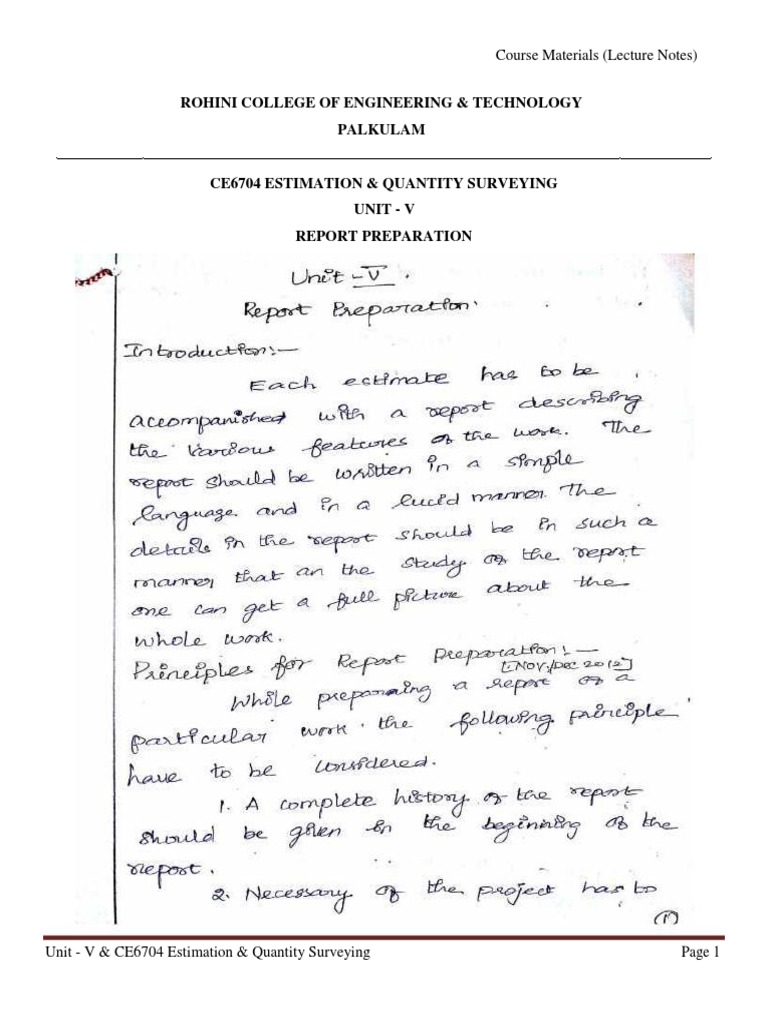 Course Materials (Lecture Notes)
ROHINI COLLEGE OF ENGINEERING & TECHNOLOGY
PALKULAM
CE6704 ESTIMATION & QUANTITY SURVEYING
UNIT - V
REPORT PREPARATION
Unit - V .
Report Preparation.
Introduction:-
Each estimate has to be
accompanished with a report describing
the various features of the work. The
report should be written in a simple
language and in a lucid manner. The
details in the report should be in such a
manner, that an the study of the report
one can get a full picture about the
whole work.
Principles for Report Preparation:-
[Nov/Dec 2012]
While preparaing a report of a
particular work the following principle
have to be considered.
1. A complete history of the report
should be given in the beginning of the
report.
2. Necessary of the project has to
(1)
Unit - V & CE6704 Estimation & Quantity Surveying Page 1